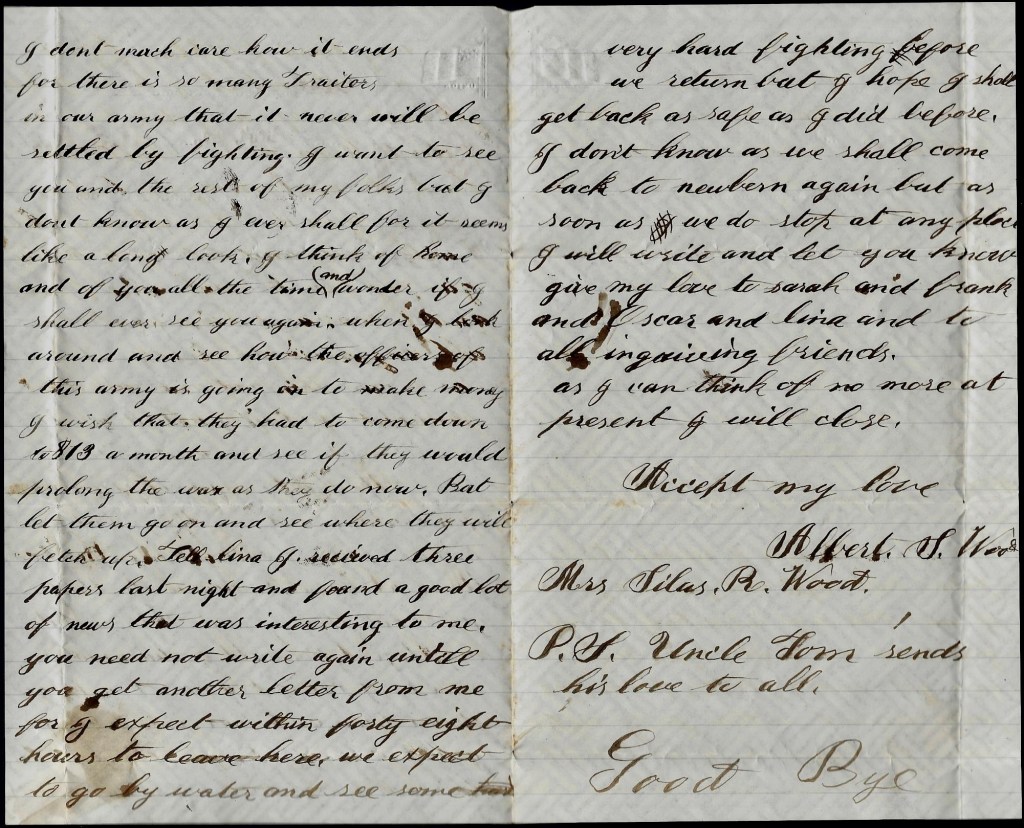 I dont much care how it ends
for there is so many Traitors
in our army that it never will be
settled by fighting. I want to see
you and the rest of my folks but I
dont know as I ever shall for it seems
like a long look. I think of home
and of you all the time (and) wonder if I
shall ever see you again. when I look
around and see how the officers of
this army is going in to make money
I wish that they had to come down
to $13 a month and see if they would
prolong the war as they do now. But
let them go on and see where they will
fetch up. Tell Lina I recieved three
papers last night and found a good lot
of news that was interesting to me.
you need not write again untill
you get another letter from me
for I expect within forty eight
hours to leave here, we expect
to go by water and see some
very hard fighting before
we return but I hope I shall
get back as safe as I did before.
I don't know as we shall come
back to newbern again but as
soon as we do stop at any place
I will write and let you know
give my love to sarah and frank
and Oscar and Lina and to
all inquiring friends.
as I can think of no more at
present I will close.
Accept my love
Albert. S. Wood
Mrs Silas. R. Wood.
P. S. Uncle Tom sends
his love to all.
Good Bye